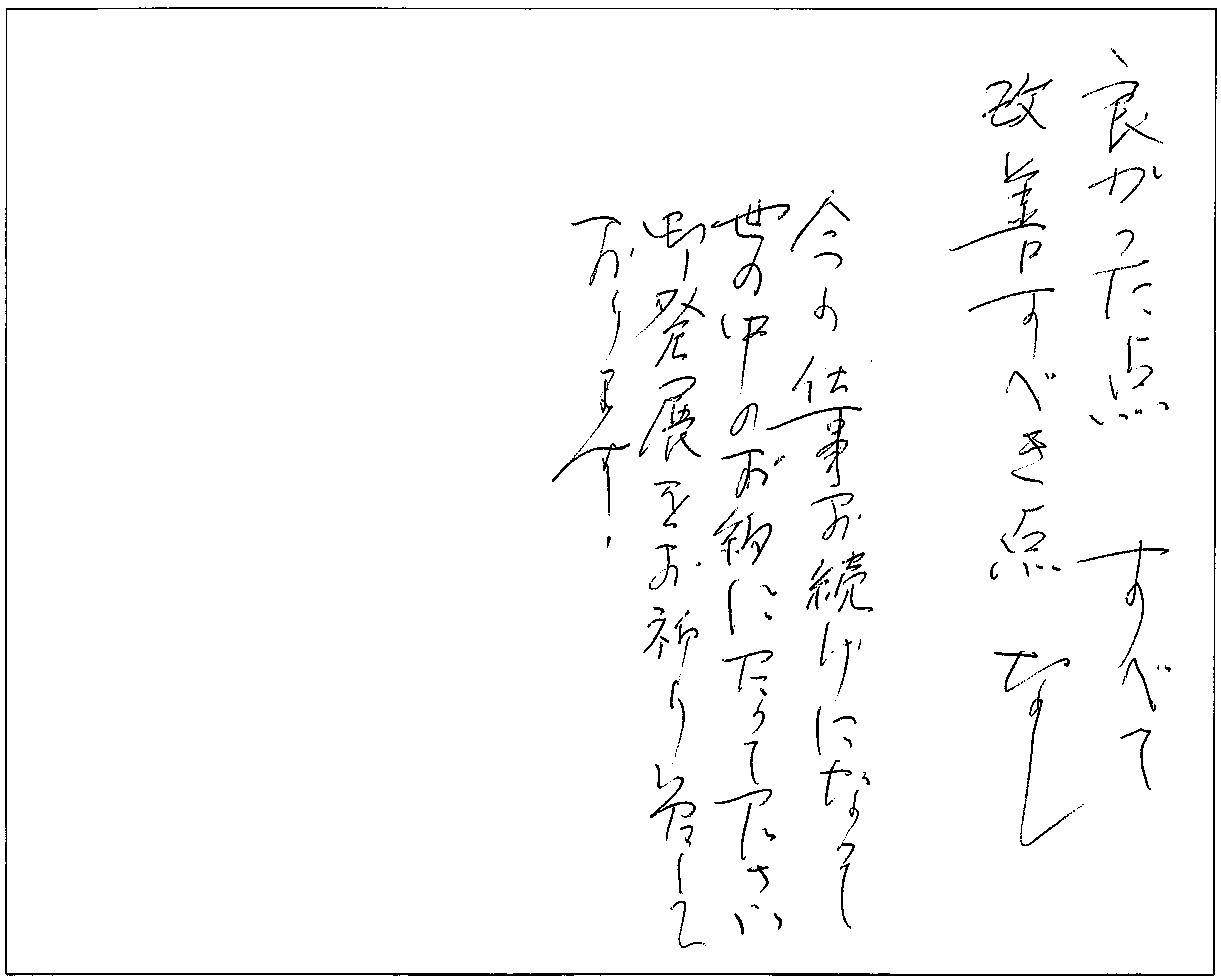 良かった点 すべて
改善すべき点 なし
今の仕事お続けになって
世の中のお納にたって下さい
御発展をお祈り致して
おります.